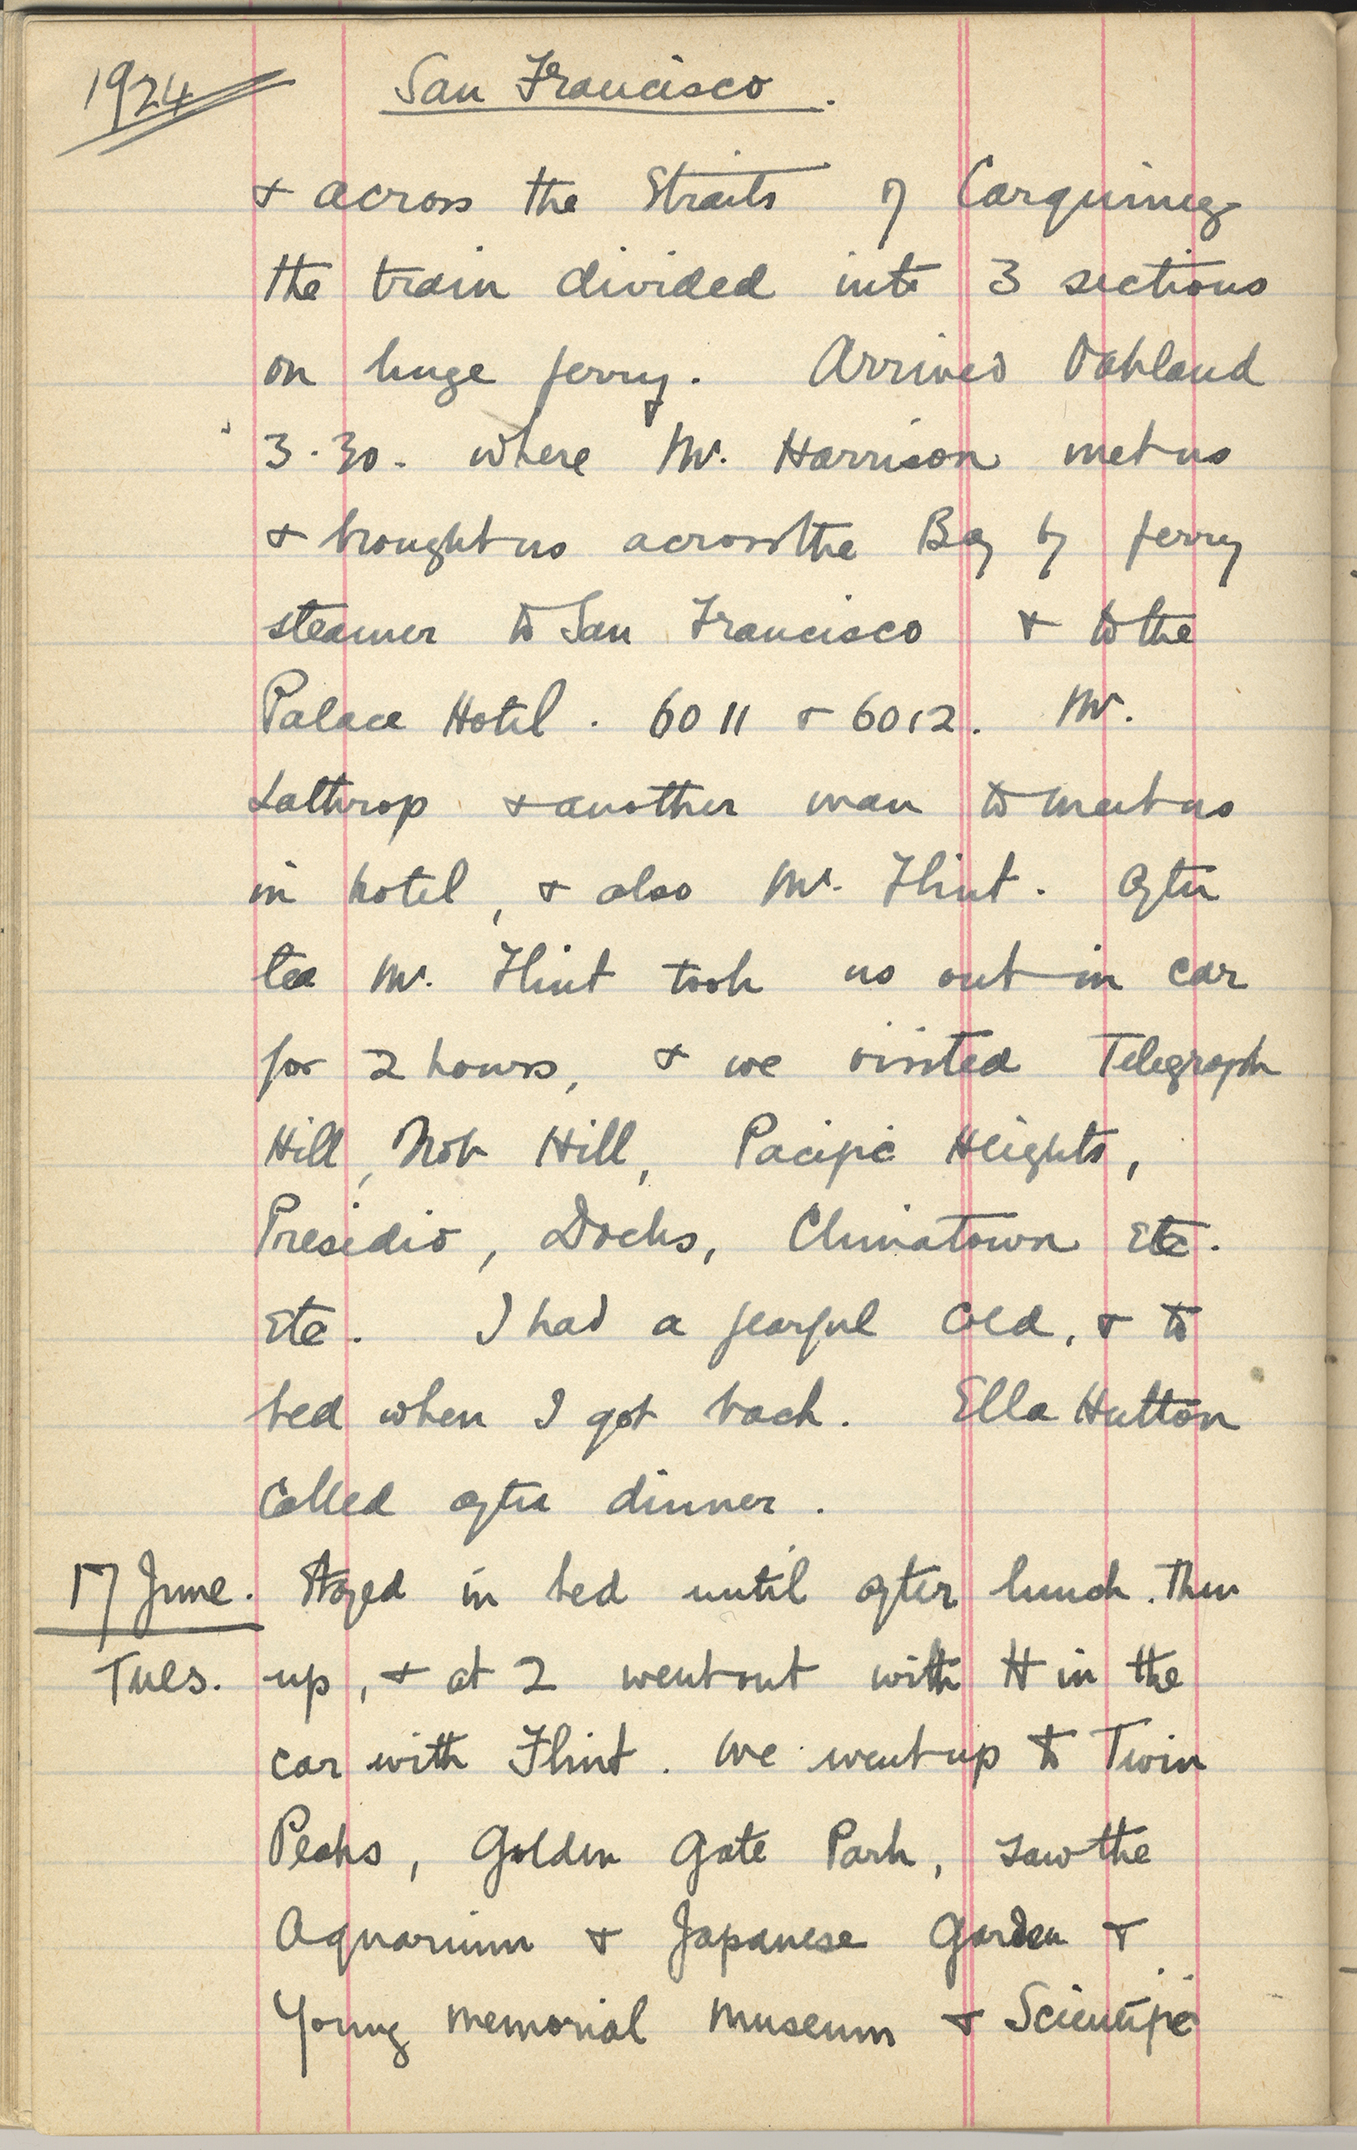 1924
San Francisco.
+ across the Straits of Carquinez
the train divided into 3 sections
on huge ferry. Arrived Oakland
3.30. where Mr. Harrison met us
+ brought us across the Bay by ferry
steamer to San Francisco + to the
Palace Hotel. 6011 + 6012. Mr.
Lathrop + another man to meet us
in hotel, + also Mr. Flint. After
tea Mr. Flint took us out in car
for 2 hours, + we visited Telegraph
Hill, Nob Hill, Pacific Heights,
Presidio, Docks, Chinatown etc.
etc. I had a fearful cold, + to
bed when I got back. Ella Hutton
called after dinner.
17 June. Stayed in bed until after lunch. Then
Tues. up, + at 2 went out with H in the
car with Flint. We went up to Twin
Peaks, Golden Gate Park, saw the
Aquarium + Japanese Garden +
Young Memorial Museum + Scientific